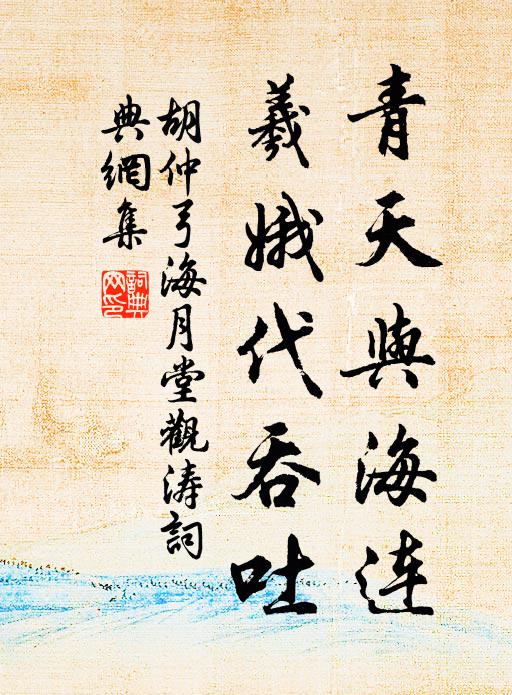 青天與海连
羲娥代吞吐
胡仲弓海月堂觀涛詞
典網集
詞典网印